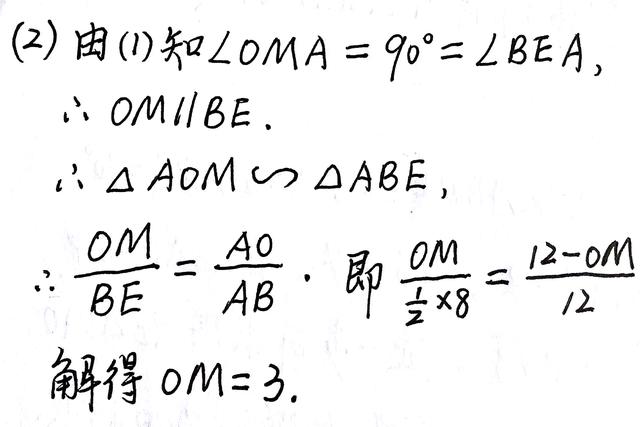 (2) 由(1)知∠OMA = 90° = ∠BEA,
∴ OM∥BE.
∴ △AOM ∽ △ABE,
∴ OM/BE = AO/AB. 即 OM/(1/2×8) = (12-OM)/12
解得 OM=3.